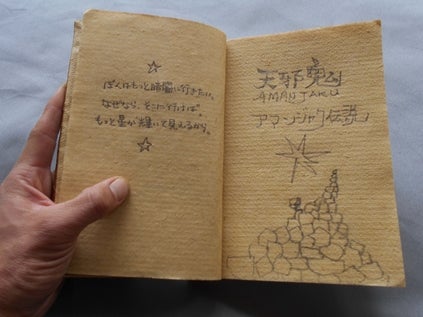 ☆
ぼくはもっと暗闇に行きたい。
なぜなら、そこに行けば、
もっと星が輝いて見えるから。
☆
天邪
AMANJAKU
アマンジャク伝説